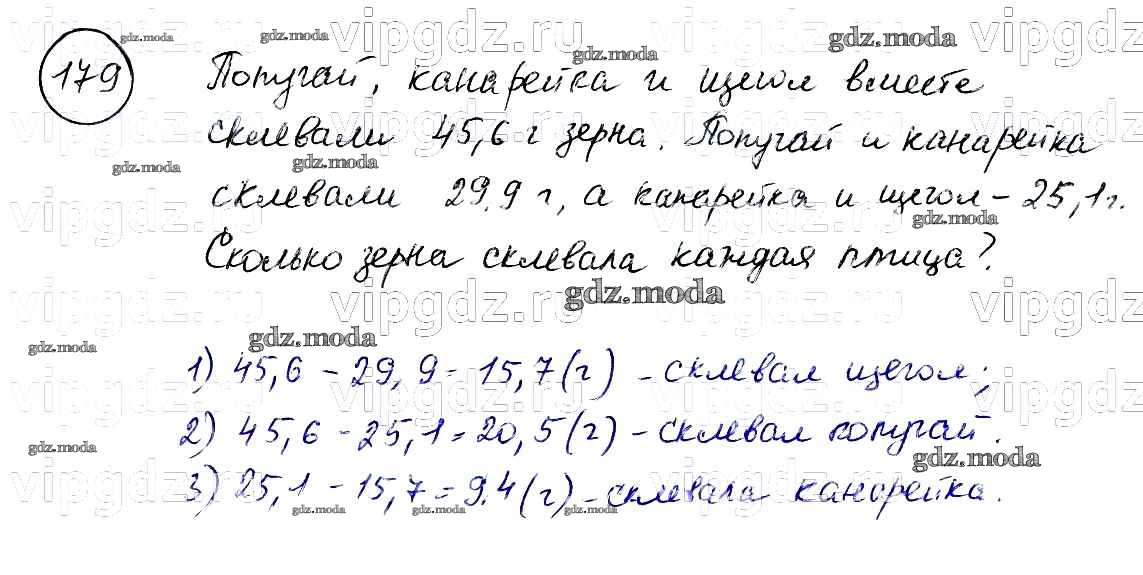 179
Попугай, канарейка и щегол вместе
склевали 45,6 г зерна. Попугай и канарейка
склевали 29,9 г, а канарейка и щегол – 25,1 г.
Сколько зерна склевала каждая птица?
1) 45,6 – 29,9 = 15,7 (г) – склевал щегол;
2) 45,6 – 25,1 = 20,5 (г) – склевал попугай.
3) 25,1 – 15,7 = 9,4 (г) – склевала канарейка.
vipgdz.ru
gdz.moda